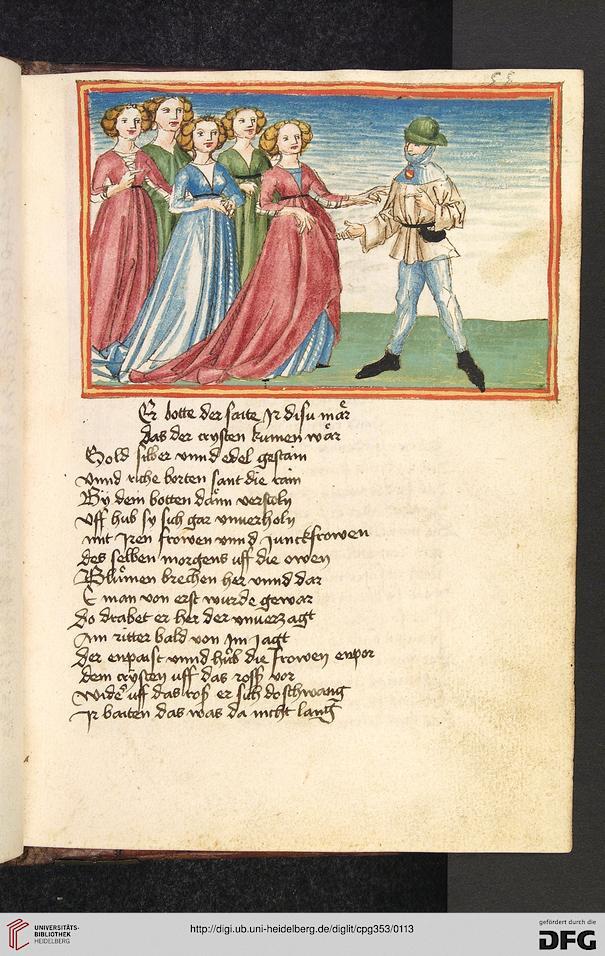 55
Er botte der saite Ir disu mär
das der cristen kumen wär
Gold silber vnnd edel gestain
vnnd riche borten sant die rain
By dem botten dann verstoln
Vff hub sy sich gar vnuerholn
mit Iren frowen vnnd Junckfrowen
des selben morgens vff die owen
Blümen brechen her vnnd dar
E man von erst wurde gewar
Do drabet er her der vnuerzagt
Am ritter bald von Im Jagt
Der enpaist vnnd hüb die frowen enpor
dem cristen vff das ross vor
wider vff das ross er sich do schwang
Ir baiten das was da nicht lang
UNIVERSITÄTS-
BIBLIOTHEK
HEIDELBERG
http://digi.ub.uni-heidelberg.de/diglit/cpg353/0113
gefördert durch die
DFG